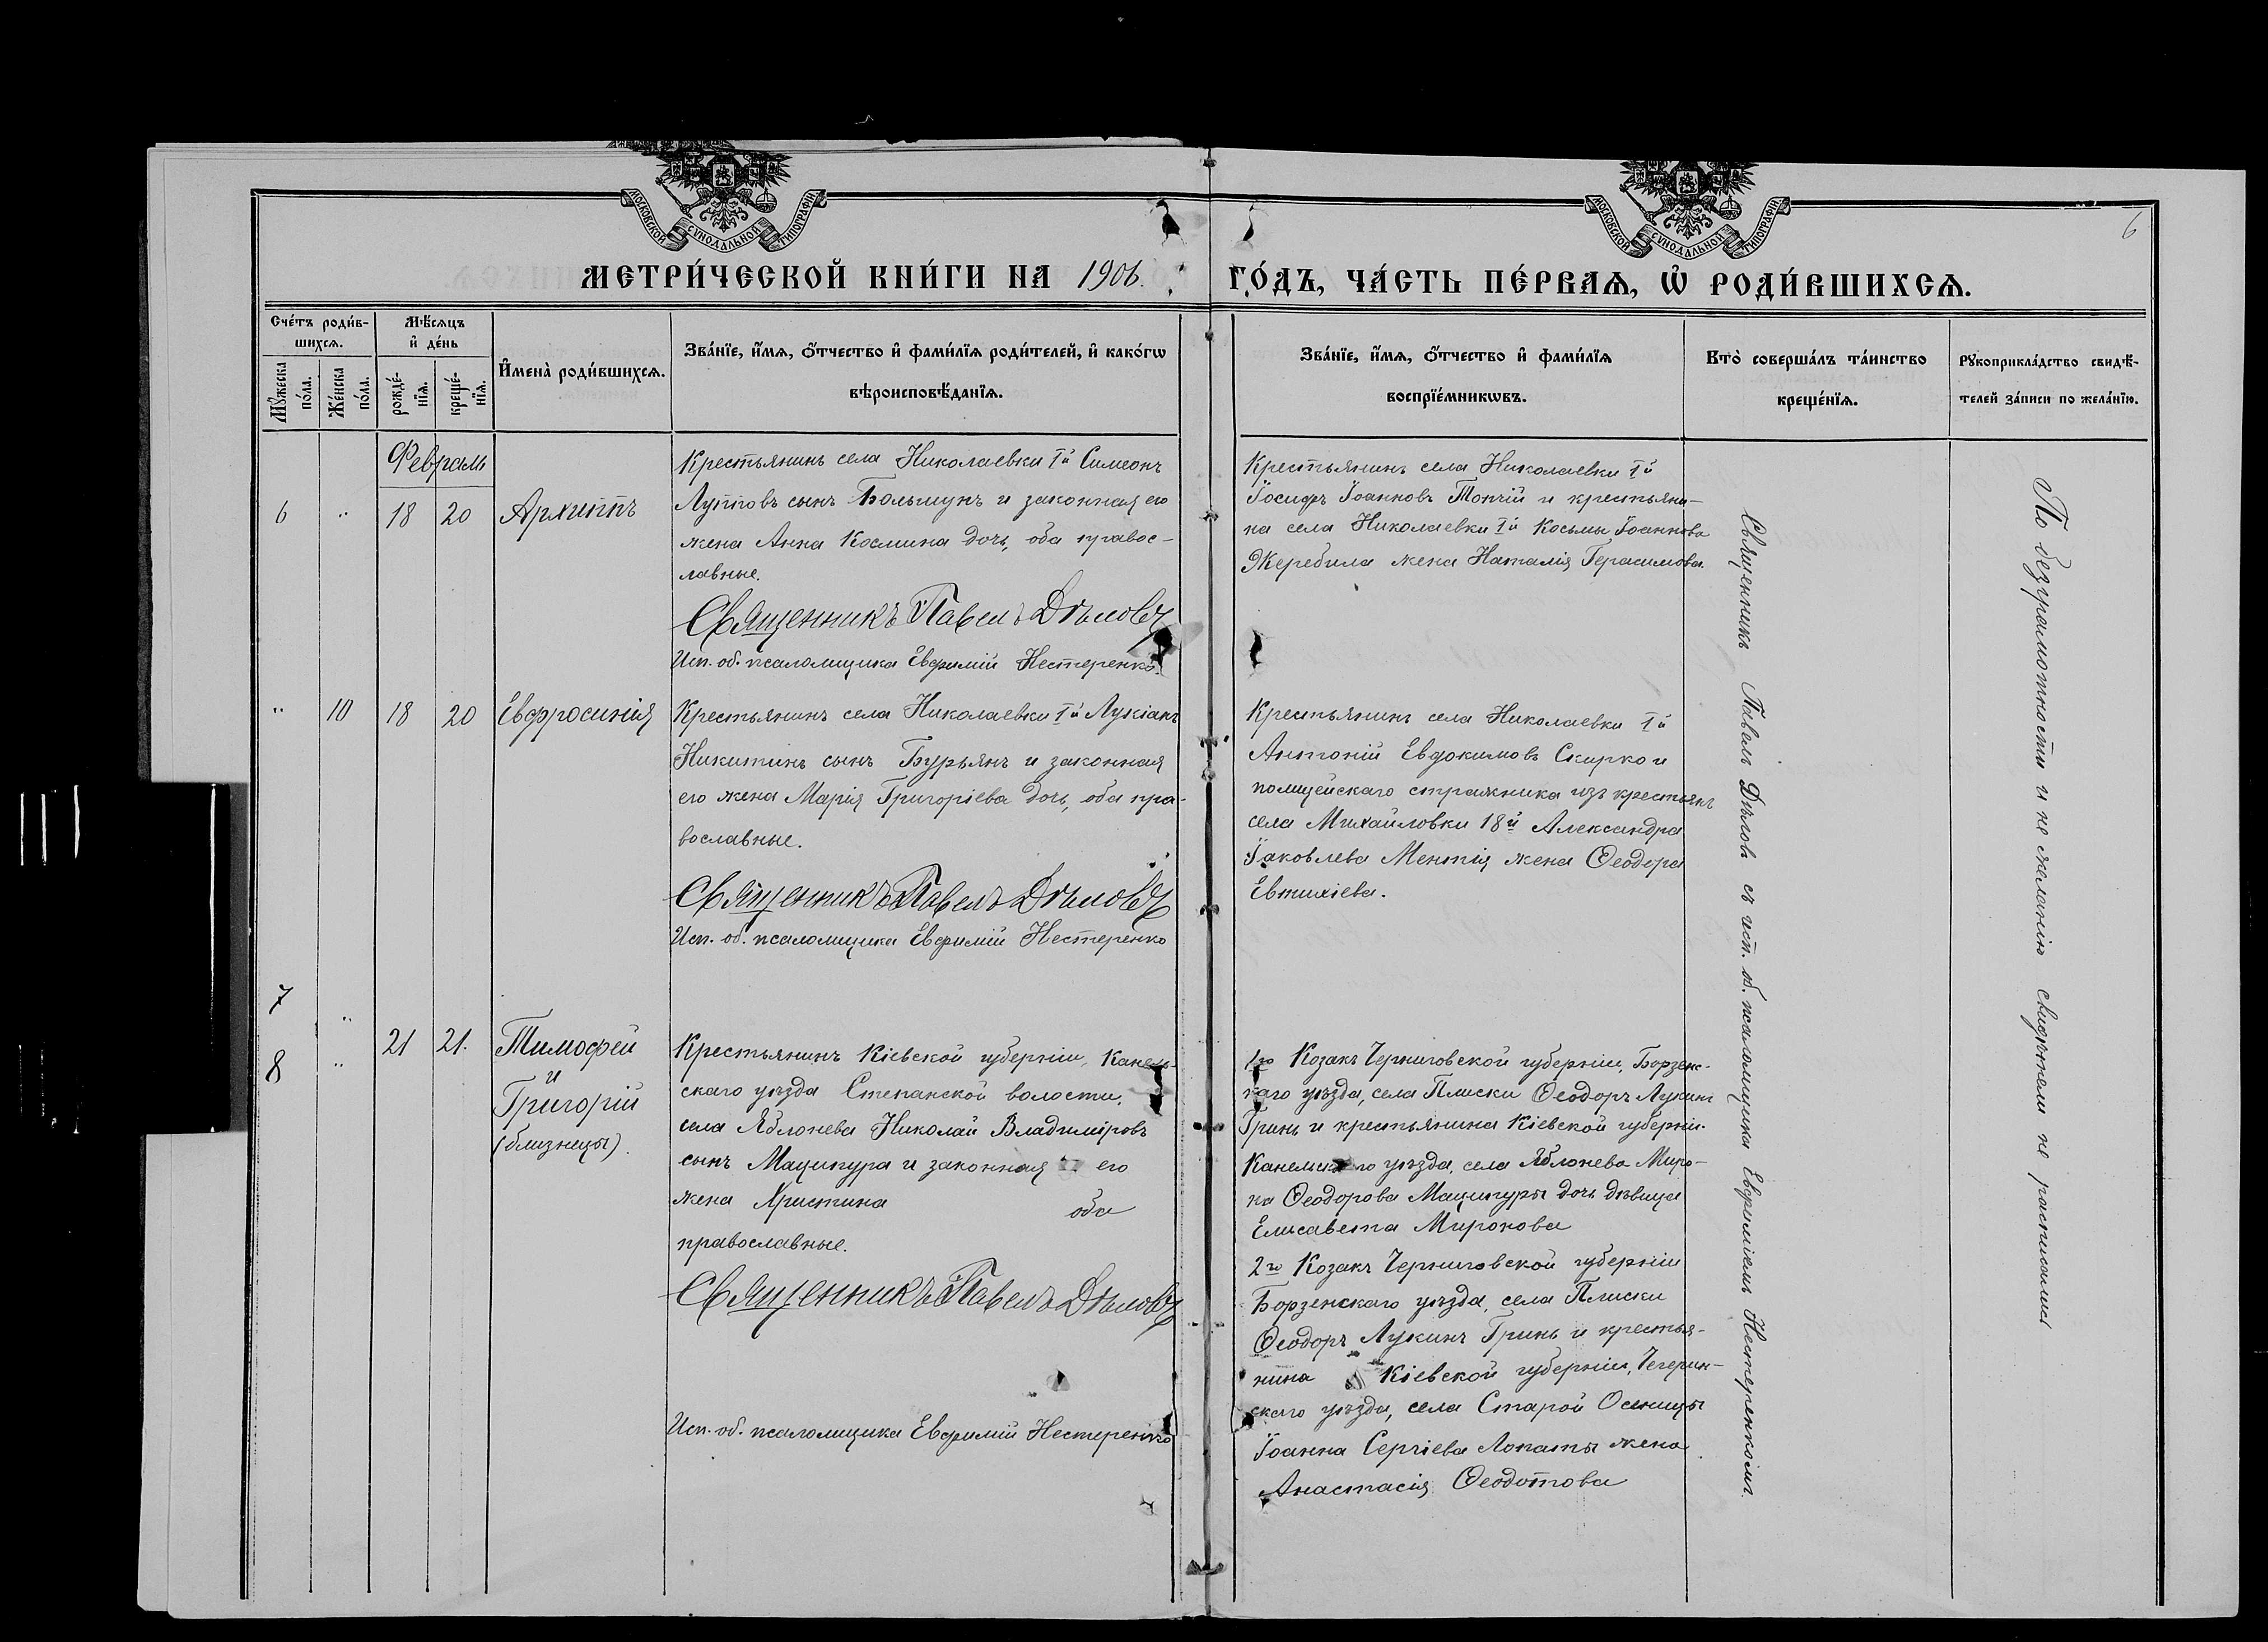 МОСКОВСКОЙ СУНОДАЛЬНОЙ ТИПОГРАФІИ
МОСКОВСКОЙ СУНОДАЛЬНОЙ ТИПОГРАФІИ
6
МЕТРИ́ЧЕСКОЙ КНИ́ГИ НА 1906.
ГО́ДЪ, ЧА́СТЬ ПЕ́РВАѦ, Ѡ҆ РОДИ́ВШИХСѦ.
Сче́тъ роди́в-
шихсѧ.
Мꙋ́жеска
по́ла.
Же́нска
по́ла.
Мѣ́сѧцъ
и҆ де́нь
рожде́-
нїѧ.
креще́-
нїѧ.
И҆мена̀ роди́вшихсѧ.
Зва́нїе, и҆́мѧ, ѻ҆́тчество и҆ фами́лїѧ роди́телей, и҆ како́гѡ
вѣроисповѣ́данїѧ.
Зва́нїе, и҆́мѧ, ѻ҆́тчество и҆ фами́лїѧ
воспрїе́мникѡвъ.
Кто̀ соверша́лъ та́инство
креще́нїѧ.
Рꙋкоприкла́дство свидѣ́-
телей за́писи по жела́нїю.
Февраль
6 " 18 20 Архиппъ
Крестьянинъ села Николаевки 1й Симеонъ
Лупповъ сынъ Большунъ и законная его
жена Анна Космина дочь, оба правос-
лавные.
Священникъ Павелъ Дѣловъ
Исп. об. псаломщика Евфимій Нестеренко.
Крестьянинъ села Николаевки 1й
Іосифъ Іоанновъ Топчій и крестьяни-
на села Николаевки 1й Косьмы Іоаннова
Жеребила жена Наталія Герасимова.
" 10 18 20 Евфросинія
Крестьянинъ села Николаевки 1й Лукіанъ
Никитинъ сынъ Бурьянъ и законная
его жена Марія Григоріева дочь, оба пра-
вославные.
Священникъ Павелъ Дѣловъ
Исп. об. псаломщика Евфимій Нестеренко
Крестьянинъ села Николаевки 1й
Антоній Евдокимовъ Скирко и
полицейскаго стражника изъ крестьянъ
села Михайловки 18й Александра
Іаковлева Ментія жена Ѳеодора
Евтихіева.
7 "
8 "
21 21. Тимофей
и
Григорій
(близнецы).
Крестьянинъ Кіевской губерніи, Канев-
скаго уѣзда Степанской волости,
села Яблонева Николай Владиміровъ
сынъ Маципура и законная его
жена Христина оба
православные.
Священникъ Павелъ Дѣловъ
Исп. об. псаломщика Евфимій Нестеренко
1го Козакъ Черниговской губерніи, Борзенс-
каго уѣзда, села Плиски Ѳеодоръ Лукинъ
Гринь и крестьянина Кіевской губерніи
Каневскаго уѣзда, села Яблонева Миро-
на Ѳеодорова Маципуры дочь дѣвица
Елисавета Миронова
2го Козакъ Черниговской губерніи
Борзенскаго уѣзда, села Плиски
Ѳеодоръ Лукинъ Гринь и крестья-
нина Кіевской губерніи, Чегерин-
скаго уѣзда, села Старой Осеницы
Іоанна Сергіева Лопаты жена
Анастасія Ѳеодотова
Священникъ Павелъ Дѣловъ съ исп. об. псаломщика Евфиміемъ Нестеренкомъ.
По безграмотности и не желанію свидѣтели не расписались